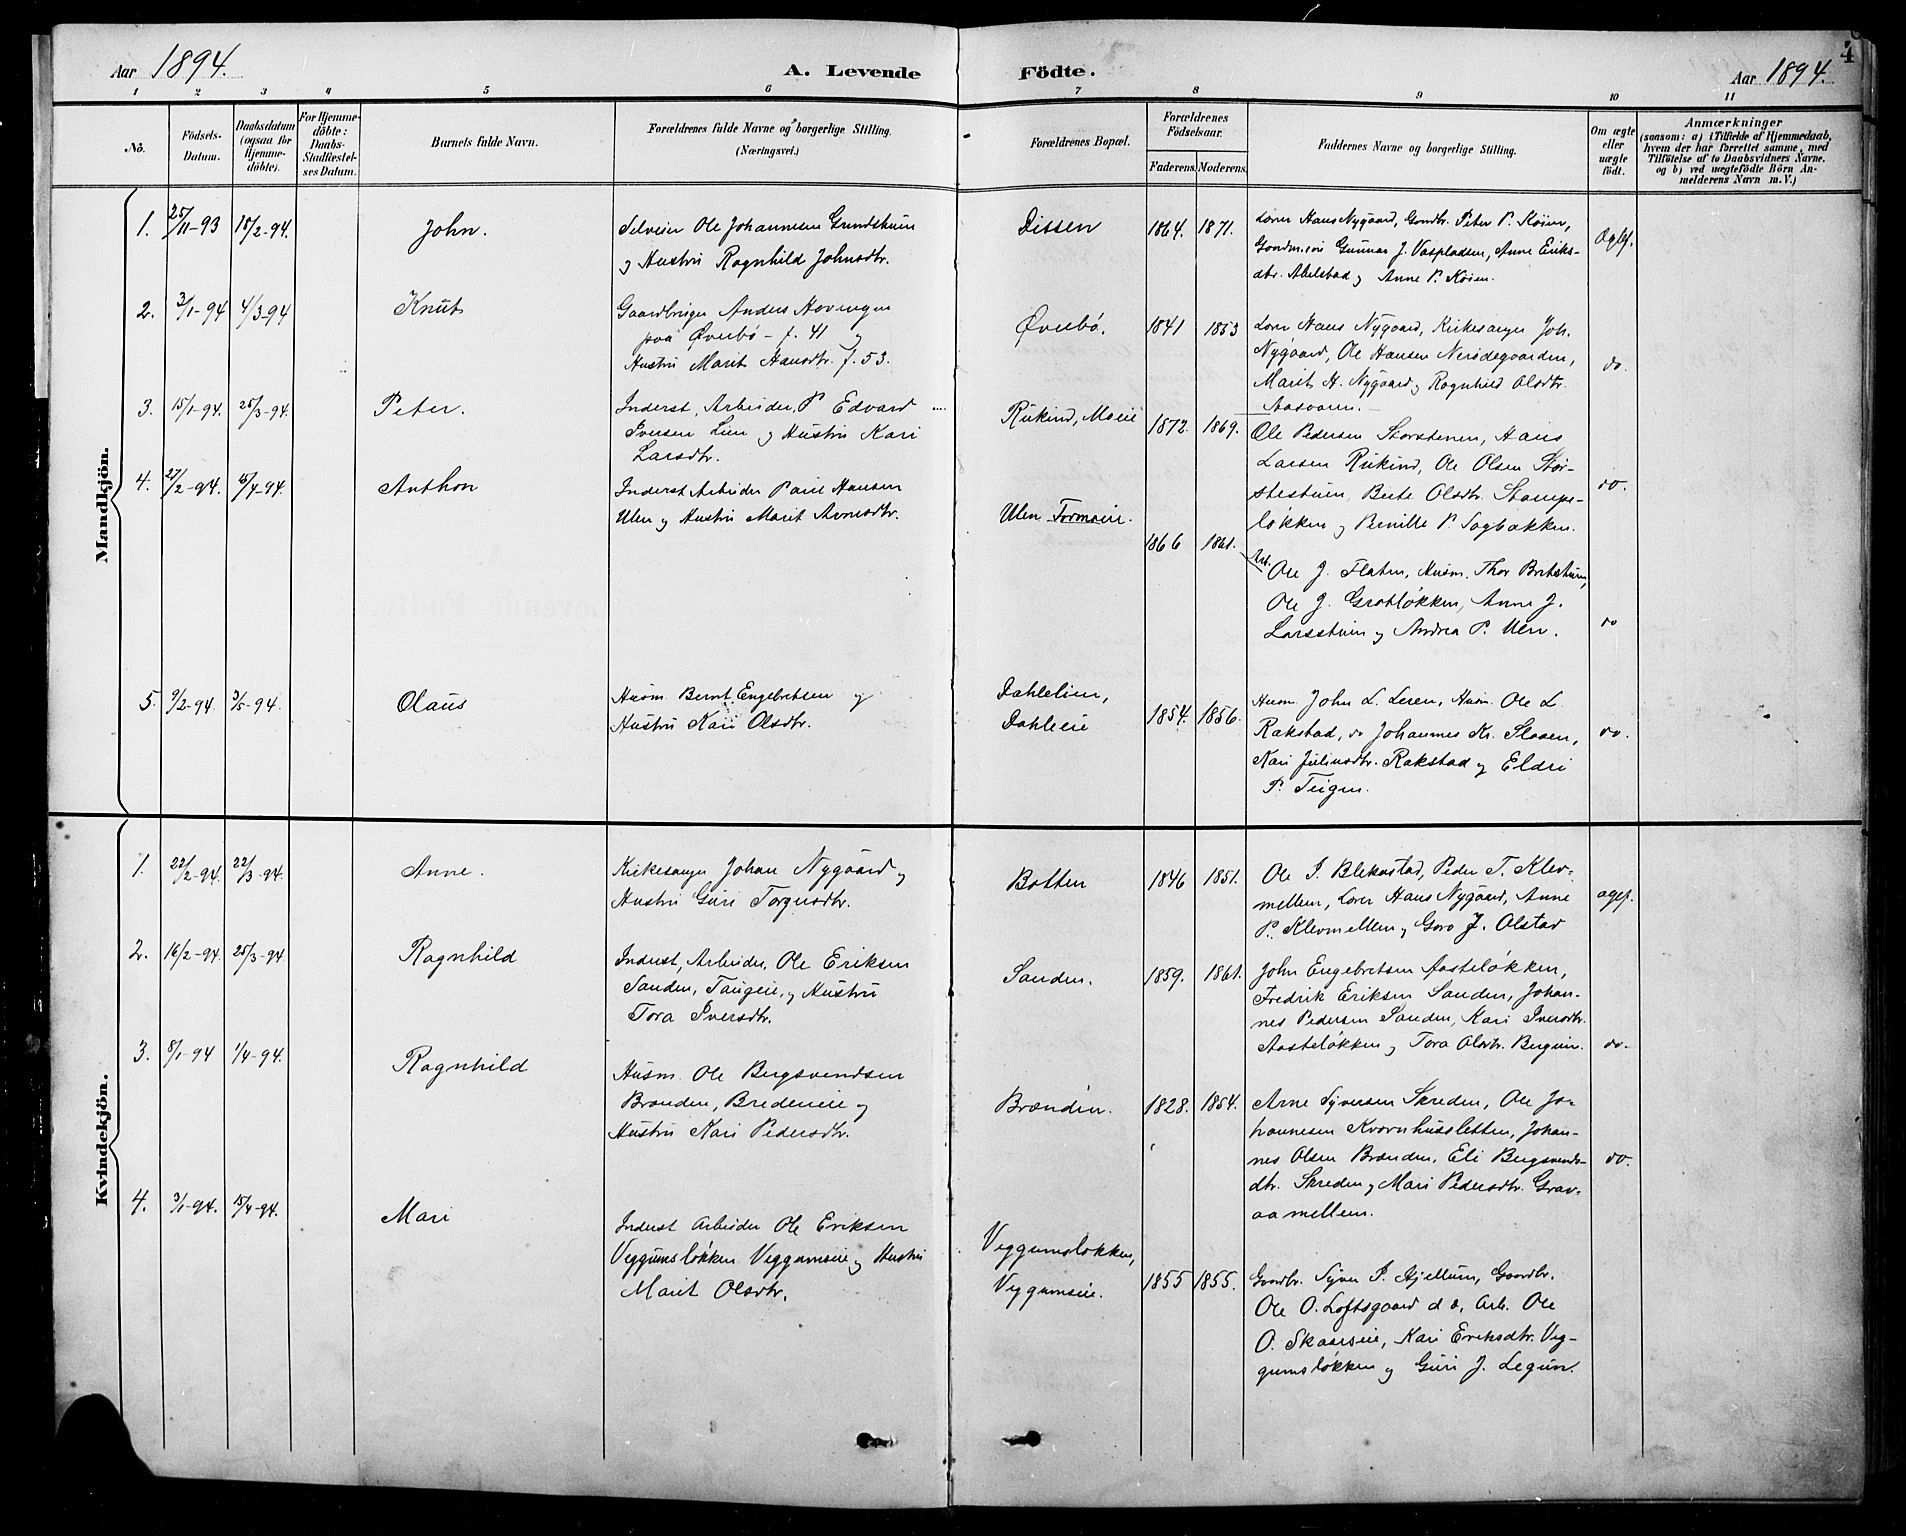 4
Aar 1894.
A. Levende Födte.
Aar 1894.
1 2 3 4 5 6 7 8 9 10 11
No.
Födsels-
Datum.
Daabsdatum
(ogsaa for
Hjemme-
döbte).
For Hjemme-
döbte:
Daabs-
Stadfæstel-
ses Datum.
Barnets fulde Navn.
Forældrenes fulde Navne og borgerlige Stilling.
(Næringsvei.)
Forældrenes Bopæl.
Forældrenes
Födselsaar.
Faderens. Moderens.
Faddernes Navne og borgerlige Stilling.
Om ægte
eller
uægte
födt.
Anmærkninger
(saasom: a) i Tilfælde af Hjemmedaab,
hvem der har forrettet samme, med
Tilföielse af to Daabsvidners Navne.
og b) ved uægtefödte Börn An-
melderens Navn m. V.)
Mandkjön.
1. 25/11-93 18/2-94. John.
Selveier Ole Johannesen Grundstuen
og Hustru Ragnhild Johnsdtr.
Dissen 1864. 1871.
Lærer Hans Nygaard, Gaardbr. Peter P. Köien,
Gunnar J. Anne Eriks-
dtr. Abelstad og Anne P. Köien.
2. 3/1-94 4/3-94 Knut
Gaardbruger Anders
paa Øvrebö - f. 41 og
Hustru Marit Hansdtr. f. 53.
Øvrebö. 1841 1853
Lærer Hans Nygaard, Kirkesanger Joh.
Nygaard, Ole Hansen Nersdegaarden,
Marit H. Nygaard og Ragnhild Olsdtr.
Aasaaren.
do.
3. 15/1-94. 25/3-94. Peter.
Inderst, Arbeider, P Edvard
Iversen Lien og Hustru Kari
Larsdtr.
Rükind, Moeie 1872. 1869.
Ole Pedersen Storstenen, Hans
Larsen Rükind, Ole Olsen Stor-
stestuen, Berte Olsdtr. Stampe-
løkken og Pernille P. Sagbakken.
do.
4. 27/2-94. 15/4-94. Anthon
Inderst Arbeider Paul Hansen
Ulen og Hustru Marit Arnesdtr.
Ulen Formoeie. 1866 1861.
Arb.
Ole J. Flaten, Husm. Thor Brekstuen,
Ole J. Grotløkken, Anne J.
Larsstuen og Andrea P. Ulen.
do
5. 9/2-94. 3/5-94. Olaus
Husm. Bernt Engebretsen og
Hustru Kari Olsdtr.
Dahlelien,
Dahleeie
1854. 1856.
Husm. John L. Leren, Husm. Ole L.
Rakstad, do Johannes Kr. Slaaen,
Kari Juliusdtr. Rakstad og Eldri
P. Teigen.
do.
Kvindekjön.
1. 22/2-94. 22/3-94. Anne.
Kirkesanger Johan Nygaard og
Hustru Guri Torgersdtr.
Botten 1846 1851.
Ole I. Blekastad, Peder T. Klev-
mellem, Lærer Hans Nygaard, Anne
P. Klevmellem og Goro J. Olstad
2. 16/2-94. 25/3-94. Ragnhild
Inderst, Arbeider, Ole Eriksen
Sanden, Taugeie, og Hustru
Tora Iversdtr.
Sanden. 1859. 1861.
John Engebretsen Aasteløkken,
Fredrik Eriksen Sanden, Johan-
nes Pedersen Sanden, Kari Iversdtr.
Aasteløkken og Tora Olsdtr. Bergum.
do.
3. 8/1-94 1/4-94. Ragnhild
Husm. Ole Bergsvendsen
Brænden, Bredeneie og
Hustru Kari Pedersdtr.
Brænden. 1828. 1854.
Arne Syversen Skreden, Ole Jo-
hannesen Kvernhussletten, Johan-
nes Olsen Brænden, Eli Bergsvends-
dtr. Skreden og Mari Pedersdtr. Grav-
aamellem.
do.
4. 3/1-94. 15/4-94. Mari
Inderst Arbeider Ole Eriksen
Veggumsløkken Veggumseie og Hustru
Marit Olsdtr.
Veggumsløkken,
Veggumseie.
1855 1855.
Gaardbr. Syver I. Hjellum, Gaardbr.
Ole O. Loftsgaard d æ, Arb. Ole
O. Skaarseie, Kari Eriksdtr. Veg-
gumsløkken og Guri J. Legun.